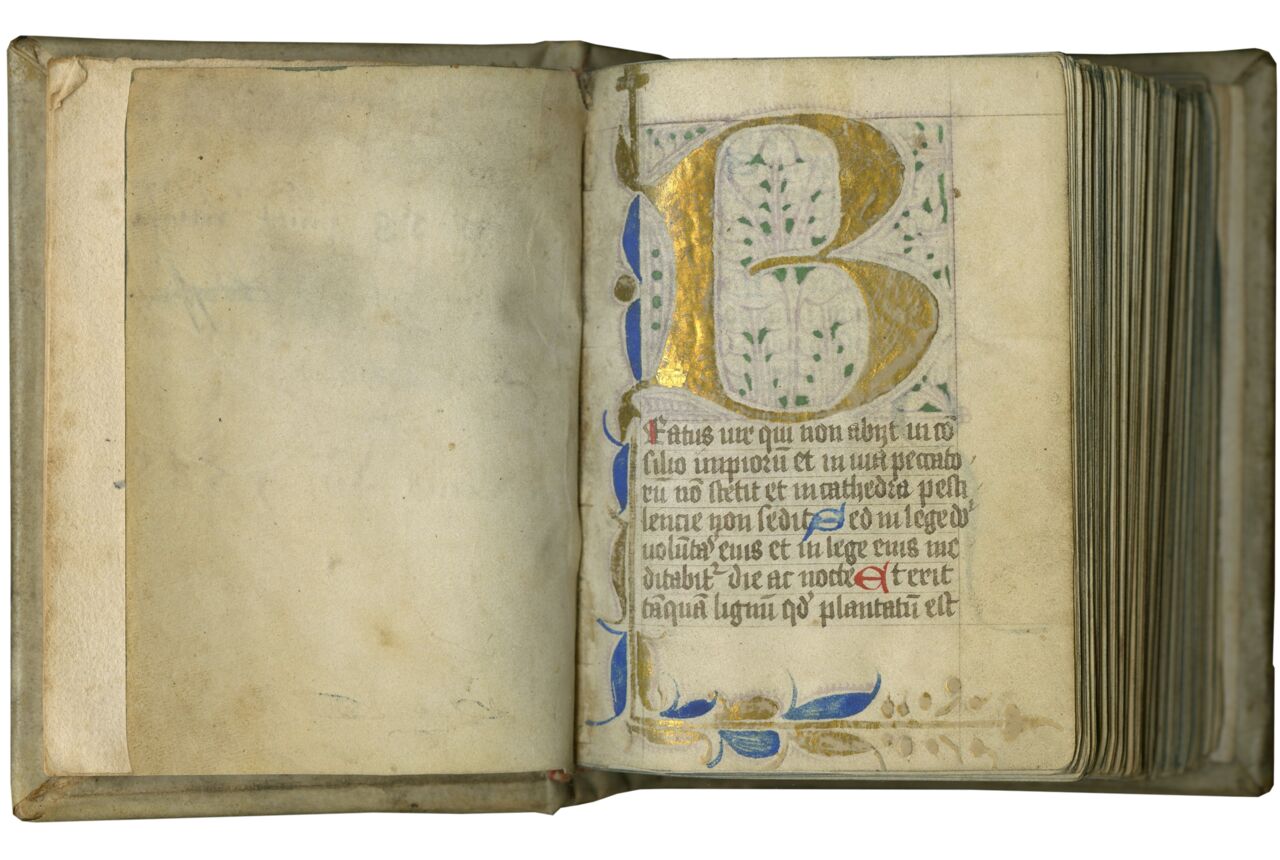 B
Eatus uir qui non abijt in cō
silio impiorū et in uia peccato
rū nō stetit et in cathedra pesti
lencie non sedit Sed in lege dn̄i
uolūtas eius et in lege eius me
ditabitr die ac nocte Et erit
tāquā lignū qd̛ plantatū est